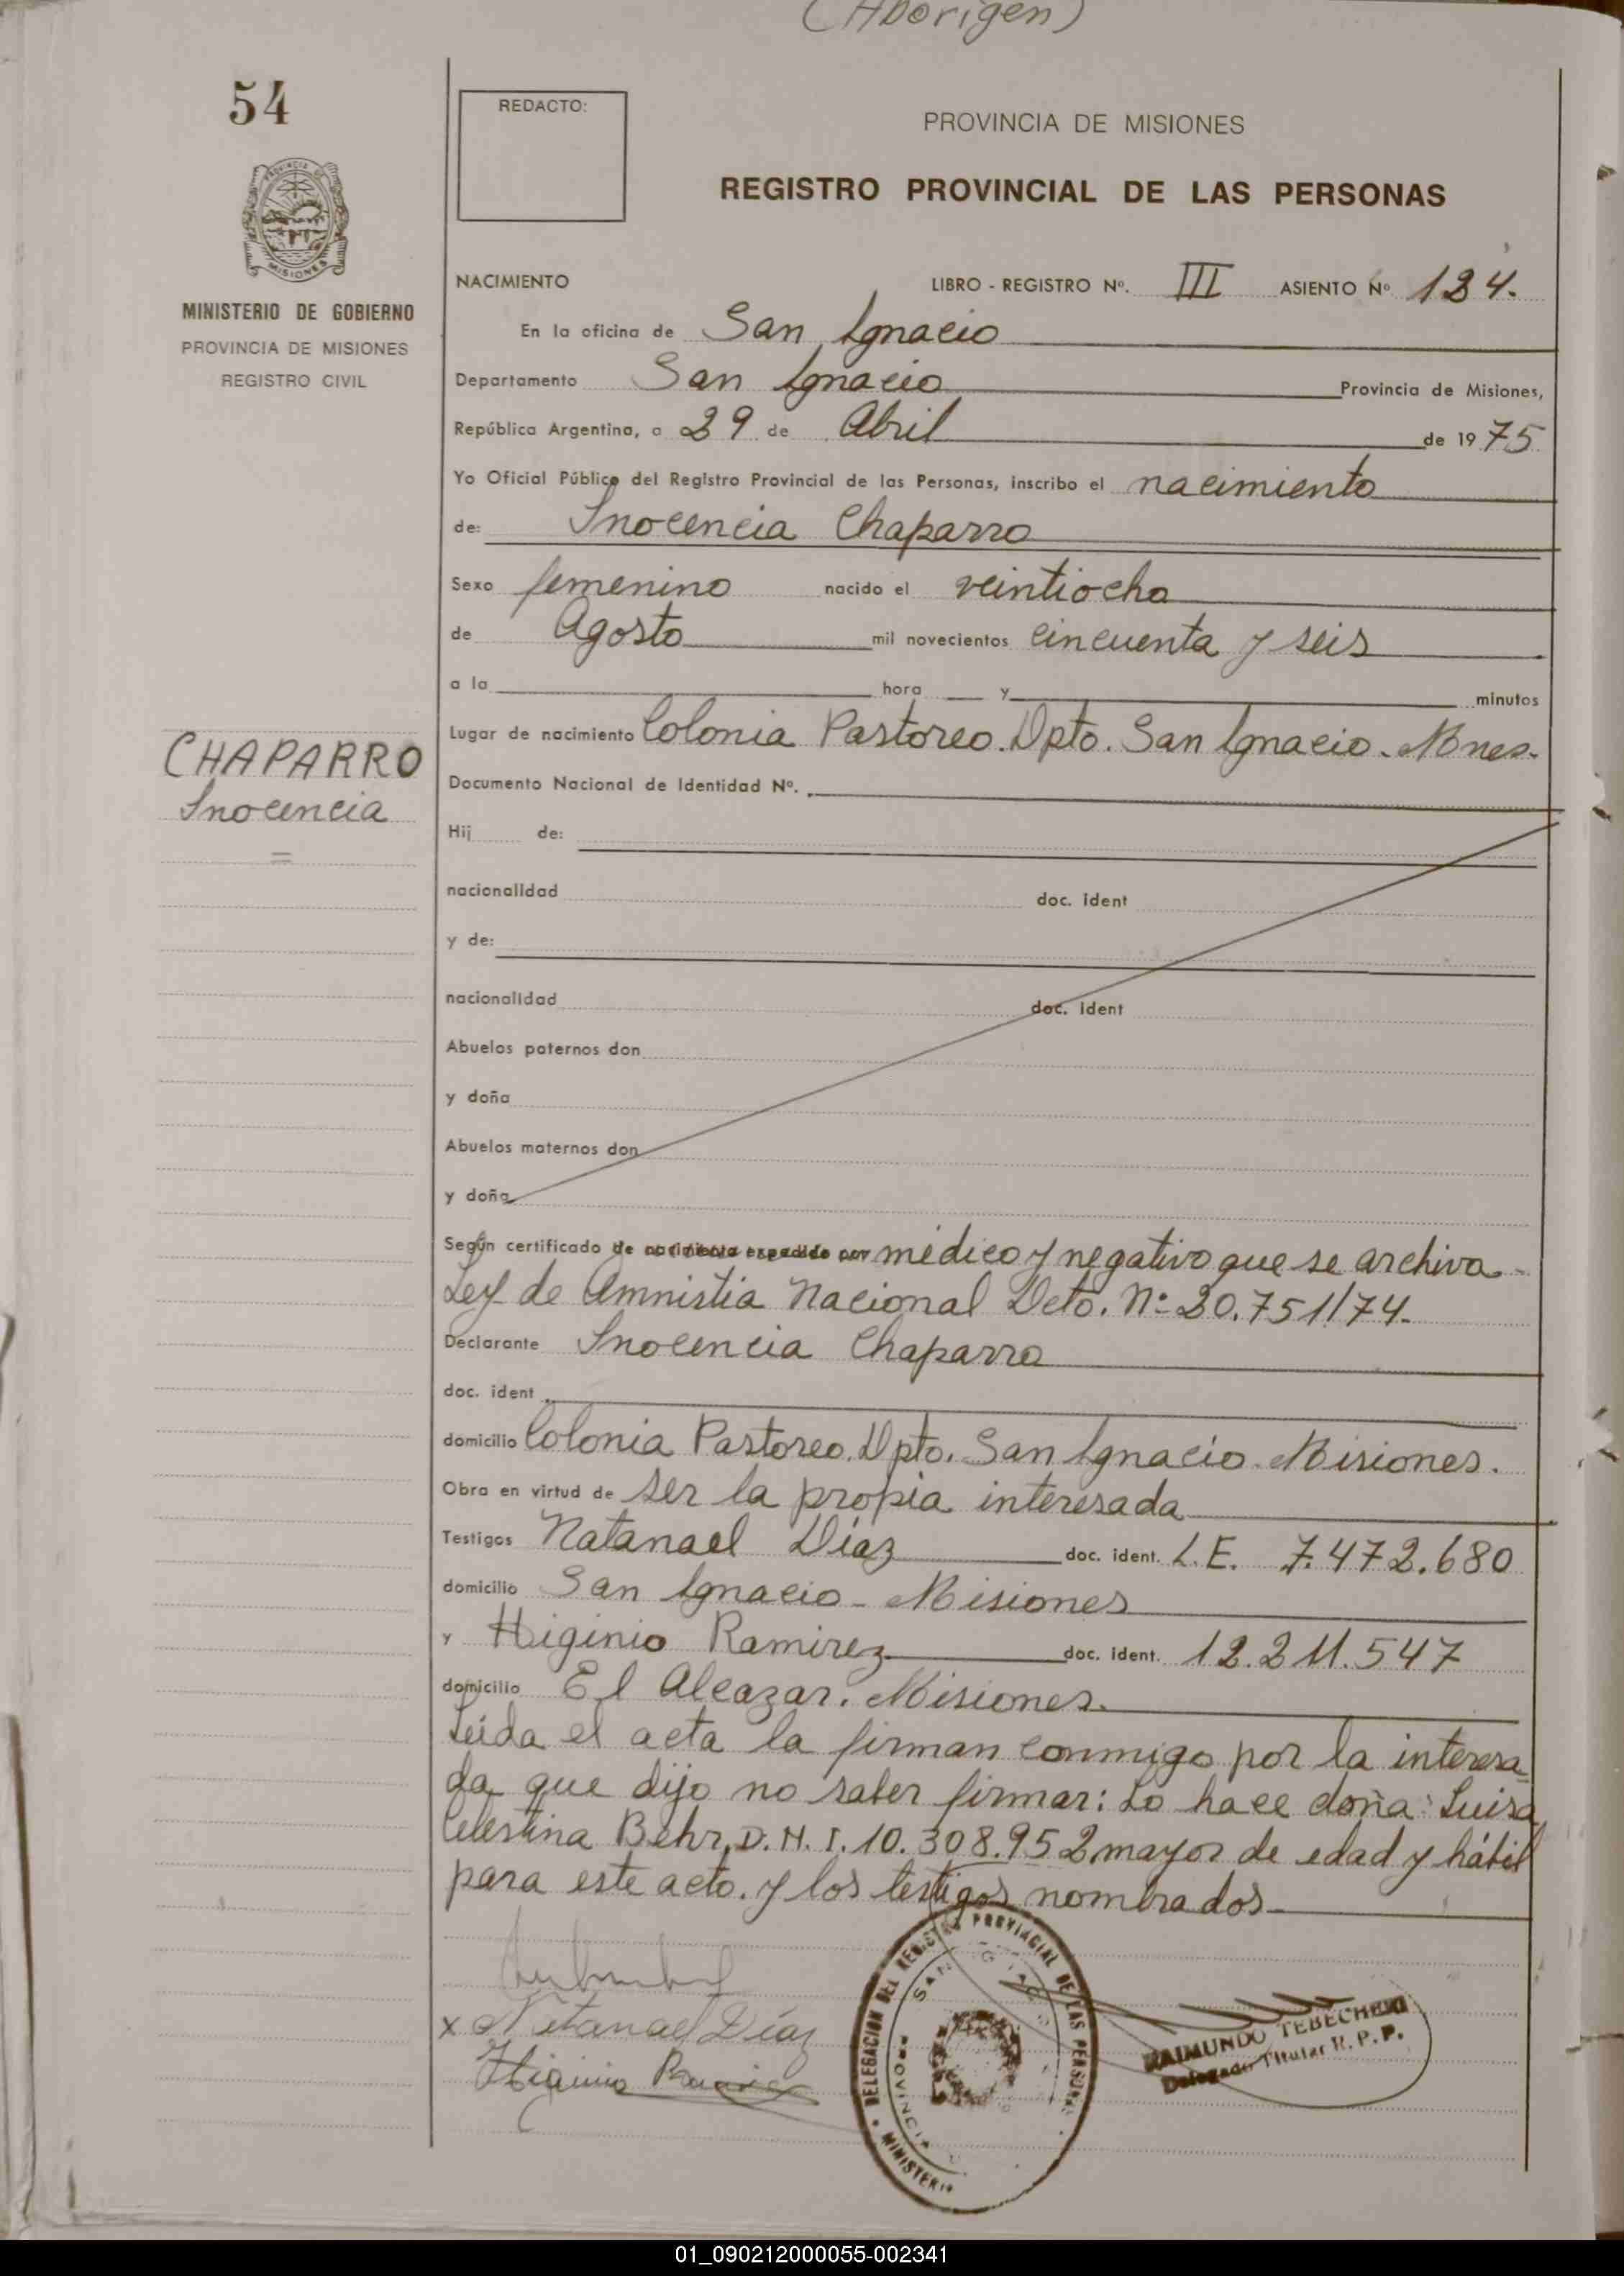 (Aborigen)
54
REDACTO:
PROVINCIA DE MISIONES
REGISTRO PROVINCIAL DE LAS PERSONAS
MISIONES
MINISTERIO DE GOBIERNO
PROVINCIA DE MISIONES
REGISTRO CIVIL
NACIMIENTO LIBRO - REGISTRO Nº. III ASIENTO Nº 124.
En la oficina de San Ignacio
Departamento San Ignacio Provincia de Misiones,
República Argentina, a 29 de Abril de 1975
Yo Oficial Público del Registro Provincial de las Personas, inscribo el nacimiento
de: Inocencia Chaparro
Sexo femenino nacido el veintiocho
de Agosto mil novecientos cincuenta y seis
a la hora y minutos
Lugar de nacimiento Colonia Pastoreo. Dpto. San Ignacio. Mnes.
CHAPARRO
Inocencia
=
Documento Nacional de Identidad Nº.
Hij de:
nacionalidad doc. ident
y de:
nacionalidad doc. ident
Abuelos paternos don
y doña
Abuelos maternos don
y doña
Según certificado de nacimiento expedido por médico y negativo que se archiva.
Ley de Amnistia Nacional Dcto. Nº 20.751/74.
Declarante Inocencia Chaparro
doc. ident
domicilio Colonia Pastoreo. Dpto. San Ignacio. Misiones.
Obra en virtud de ser la propia interesada
Testigos Natanael Díaz doc. ident. L.E. 7.472.680
domicilio San Ignacio - Misiones
y Higinio Ramirez doc. ident. 12.211.547
domicilio El Alcazar. Misiones.
Leída el acta la firman conmigo por la interesa
da que dijo no saber firmar: Lo hace doña: Luisa
Celestina Behr, D.N.I. 10.308.952 mayor de edad y hábil
para este acto. y los testigos nombrados
x Natanael Díaz
Higinio Ramirez
DELEGACION DEL REGISTRO PROVINCIAL DE LAS PERSONAS
SAN IGNACIO
PROVINCIA
MINISTERIO
RAIMUNDO TEBECHERI
Delegado Titular R.P.P.
01_090212000055-002341